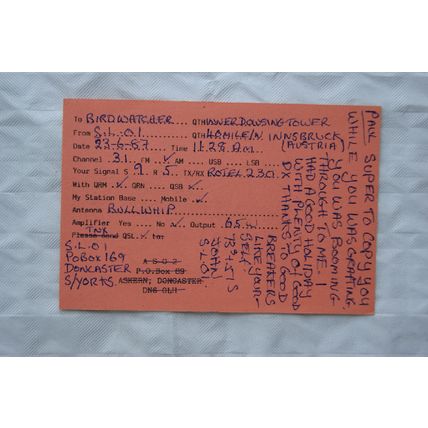 To BIRDWATCHER QTH INVERDOWSING TOWER
From S.L.01 QTH 40 MILE/N. INNSBRUCK
(AUSTRIA)
Date 23-6-87 Time 11.28 A.M.
Channel 31 FM ✓ AM USB LSB
Your Signal S 9 R 5 TX/RX ROTEL 230
With QRM ✓ QRN QSB ✓
My Station Base Mobile ✓
Antenna BULLWHIP
Amplifier Yes No ✓ Output 6.5W
TNX
Please Send QSL ✓ to:
S.L.01
PO BOX 169
DONCASTER
S/YORKS.
A S O 2
P.O.Box 89
ASKERN, DONCASTER
DN6 0LH
PAUL SUPER TO COPY YOU
WHILE YOU WAS GRAFTING.
YOU WAS BOOMING
THROUGH TO ME. I
HAD A GOOD HOLIDAY
WITH PLENTY OF GOOD
DX THANKS TO GOOD
BREAKERS
LIKE YOUR-
SELF
73+51'S
JOHN
S.L.01